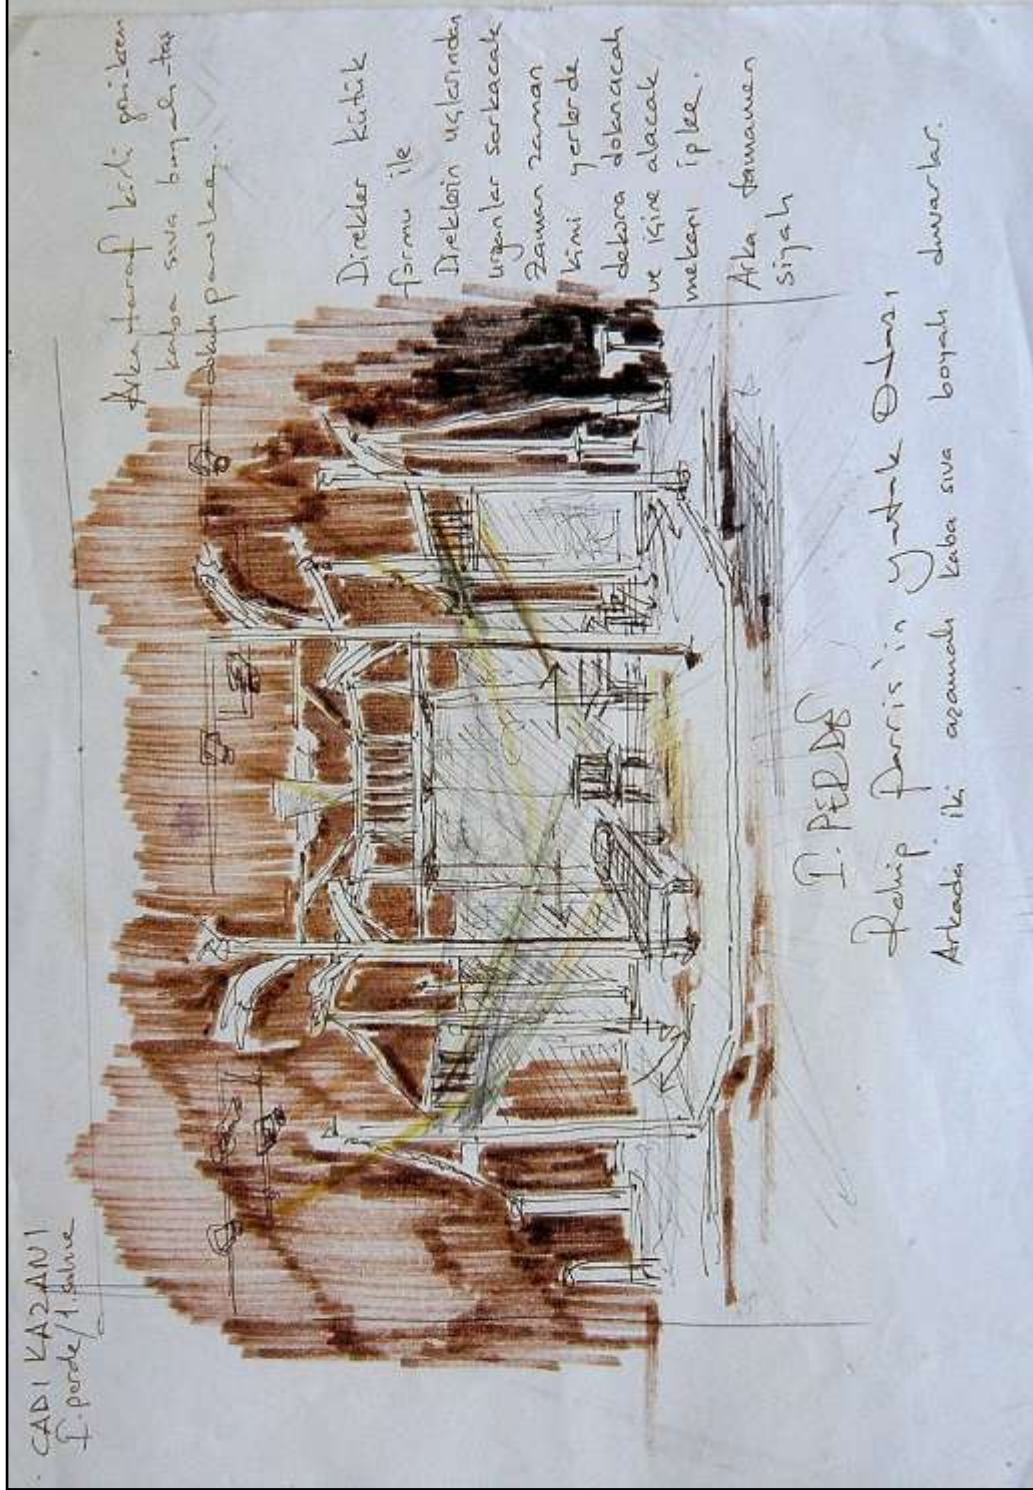 CADI KAZANI
I. perde/1. sahne
Arka taraf kirli görünen
kaba sıva boyalı-taş
dokulu panolar.
Direkler kütük
formu ile
Direklerin uçlarından
urganlar sarkacak
Zaman zaman
kimi yerlerde
dekora dokunacak
ve içine alacak
mekanı iple.
Arka tamamen
siyah
I. PERDE
Rahip Parris'in Yatak Odası
Arkada iki aşamalı kaba sıva boyalı duvarlar.